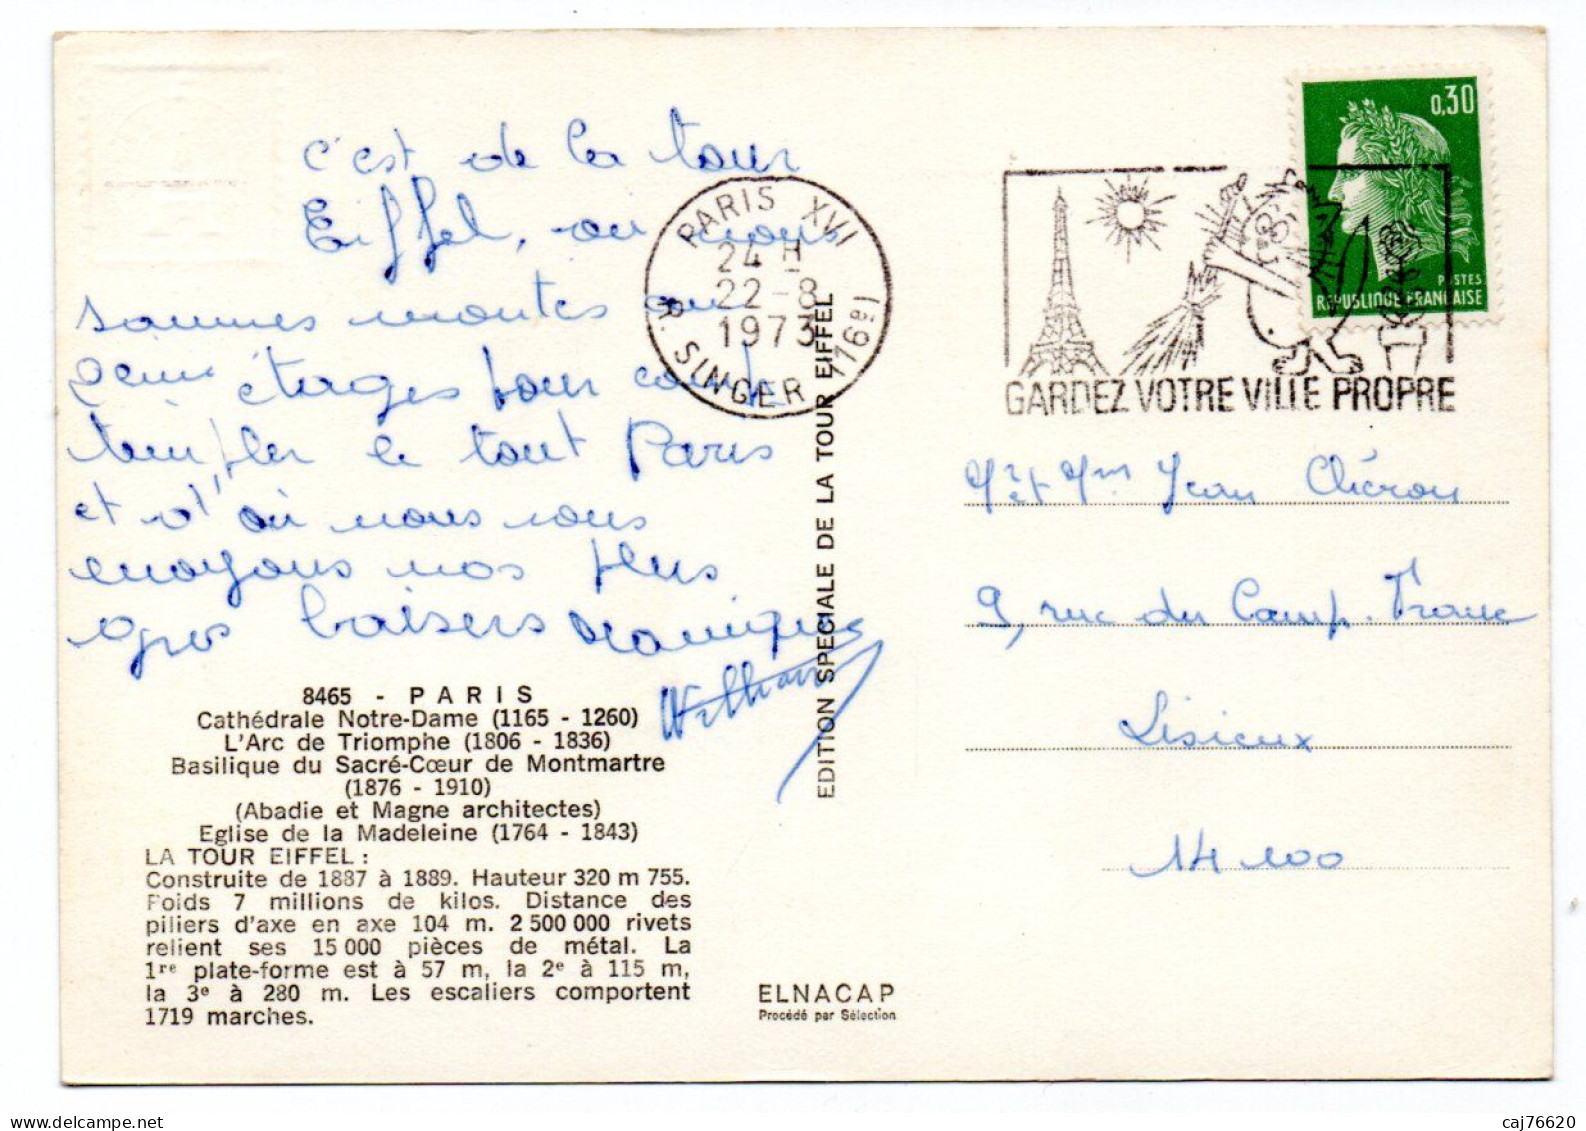 c'est de la tour
Eiffel, ou nous
sommes montés au
étages pour
le tout Paris
et d'où nous vous
envoyons nos plus
gros baisers
William
8465 - PARIS
Cathédrale Notre-Dame (1165 - 1260)
L'Arc de Triomphe (1806 - 1836)
Basilique du Sacré-Cœur de Montmartre
(1876 - 1910)
(Abadie et Magne architectes)
Eglise de la Madeleine (1764 - 1843)
LA TOUR EIFFEL :
Construite de 1887 à 1889. Hauteur 320 m 755.
Poids 7 millions de kilos. Distance des
piliers d'axe en axe 104 m. 2 500 000 rivets
relient ses 15 000 pièces de métal. La
1re plate-forme est à 57 m, la 2e à 115 m,
la 3e à 280 m. Les escaliers comportent
1719 marches.
EDITION SPECIALE DE LA TOUR EIFFEL
ELNACAP
Procédé par Sélection
PARIS XVI
24 H
22-8
1973
R. SINGER (16e)
0,30
POSTES
REPUBLIQUE FRANÇAISE
GARDEZ VOTRE VILLE PROPRE
Mr et Mme Jean Chéron
9, rue du Camp. Franc
Lisieux
14 100
caj76620